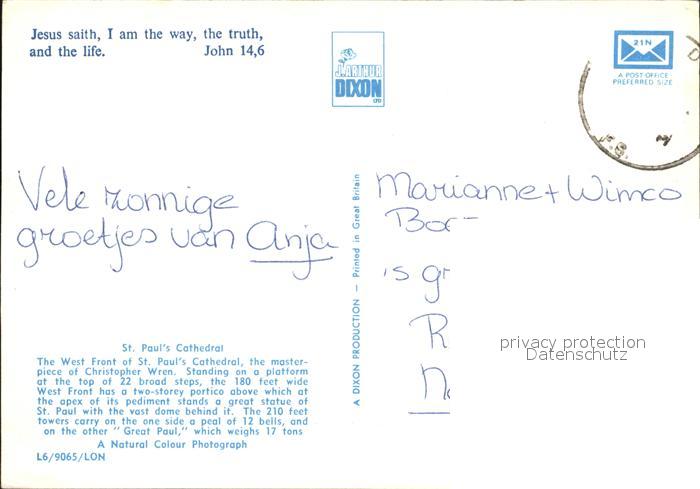 Jesus saith, I am the way, the truth,
and the life. John 14,6
J. ARTHUR
DIXON
LTD
21N
A POST OFFICE
PREFERRED SIZE
Vele zonnige
groetjes van Anja
A DIXON PRODUCTION — Printed in Great Britain
Marianne + Wimco
privacy protection
Datenschutz
St. Paul's Cathedral
The West Front of St. Paul's Cathedral, the master-
piece of Christopher Wren. Standing on a platform
at the top of 22 broad steps, the 180 feet wide
West Front has a two-storey portico above which at
the apex of its pediment stands a great statue of
St. Paul with the vast dome behind it. The 210 feet
towers carry on the one side a peal of 12 bells, and
on the other "Great Paul," which weighs 17 tons
A Natural Colour Photograph
L6/9065/LON